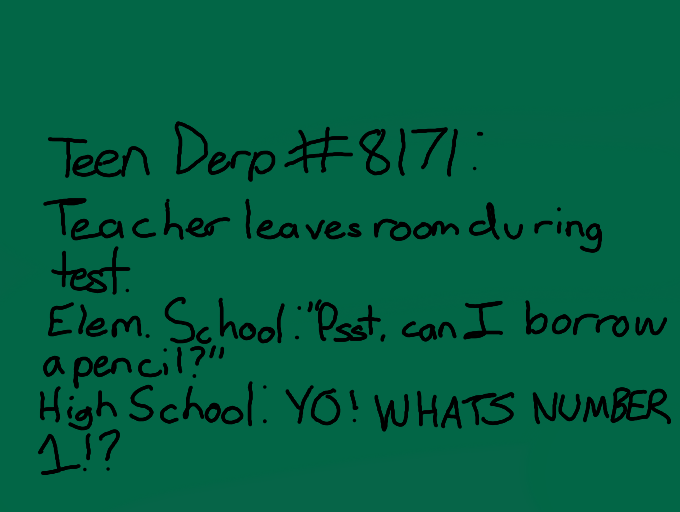 Teen Derp #8171:
Teacher leaves room during
test.
Elem. School: "Psst, can I borrow
a pencil?"
High School: YO! WHATS NUMBER
1!?